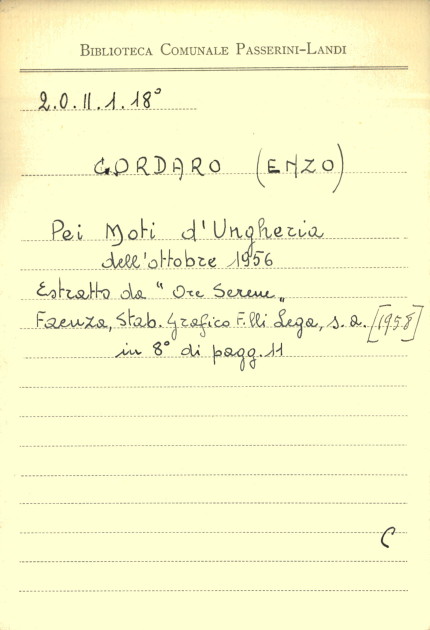 BIBLIOTECA COMUNALE PASSERINI-LANDI
2.0.II.1.18°
CORDARO (ENZO)
Pei Moti d'Ungheria
dell'ottobre 1956
Estratto da "Ore Serene"
Faenza, Stab. Grafico F.lli Lega, s.a. [1958]
in 8° di pagg. 11
C